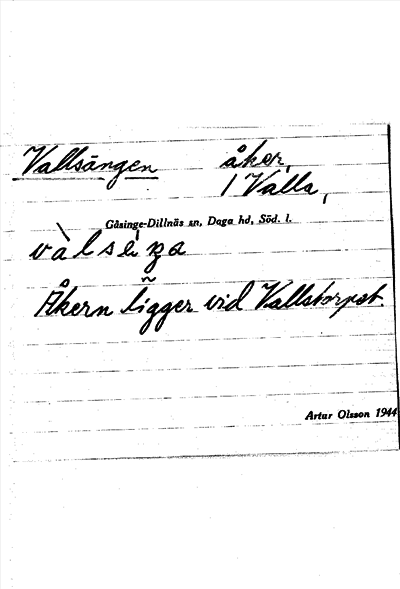 Vallsängen åker,
1 Valla,
Gåsinge-Dillnäs sn, Daga hd, Söd. l.
Åkern ligger vid Vallstorpet.
Artur Olsson 1944